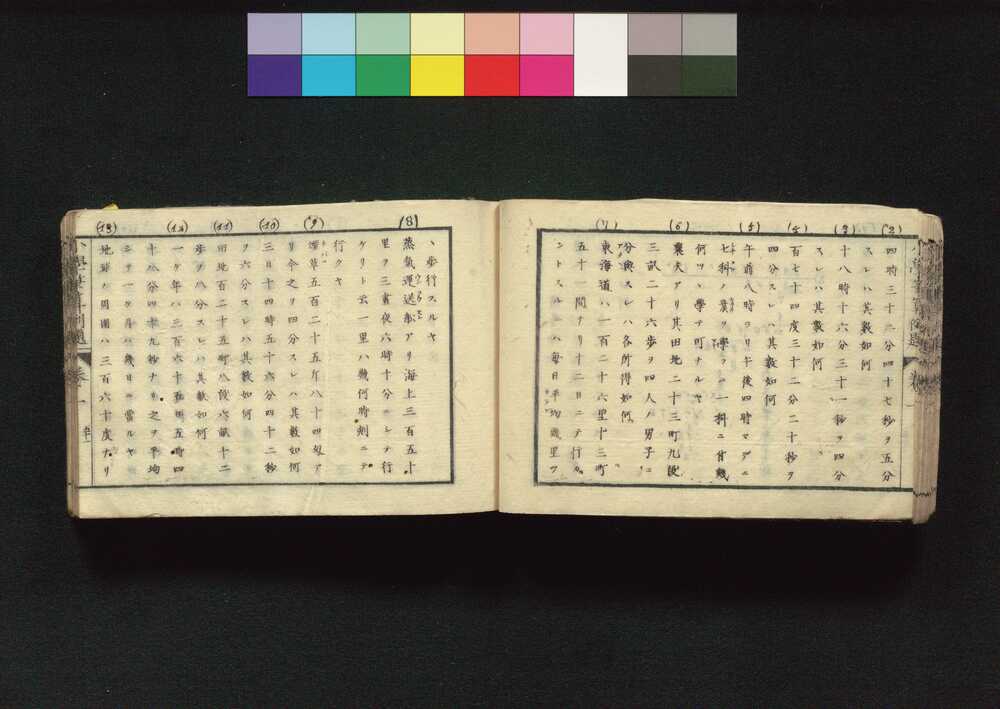 (2) 四時三十二分四十七秒ヲ五分
スレハ其数如何
(3) 十八時十六分三十一秒ヲ四分
スレハ其数如何
(4) 百七十四度三十二分二十秒ヲ
四分スレハ其数如何
(5) 午前八時ヨリ午後四時マデニ
七科ノ業ヲ學フ一科ニ付幾
何ツヽ學テ可ナルヤ
(6) 農夫アリ其田地二十三町九段
三畝二十六歩ヲ四人ノ男子ニ
分與スレハ各所得如何
(7) 東海道ハ一百二十六里十三町
五十一間ヲ十二日ニテ行カ
ントスルニハ毎日平均幾里ツ
ヽ歩行スルヤ
(8) 蒸氣運送船アリ海上三百五十
里ヲ三晝夜六時十分ニテ行
ケリト云一里ハ幾何時刻ニテ
行クヤ
(9) 煙草五百二十五斤八十四匁ア
リ今之ヲ四分スレハ其數如何
(10) 三日十四時五十六分四十二秒
ヲ六分スレハ其數如何
(11) 田地百二十五町八段六畝十二
歩ヲ八分スレハ其數如何
(12) 一ケ年ハ三百六十五日五時四
十八分四十九秒ナリ之ヲ平均
シテ一ケ月ハ幾日ニ當ルヤ
(13) 地球ノ周圍ハ三百六十度ナリ